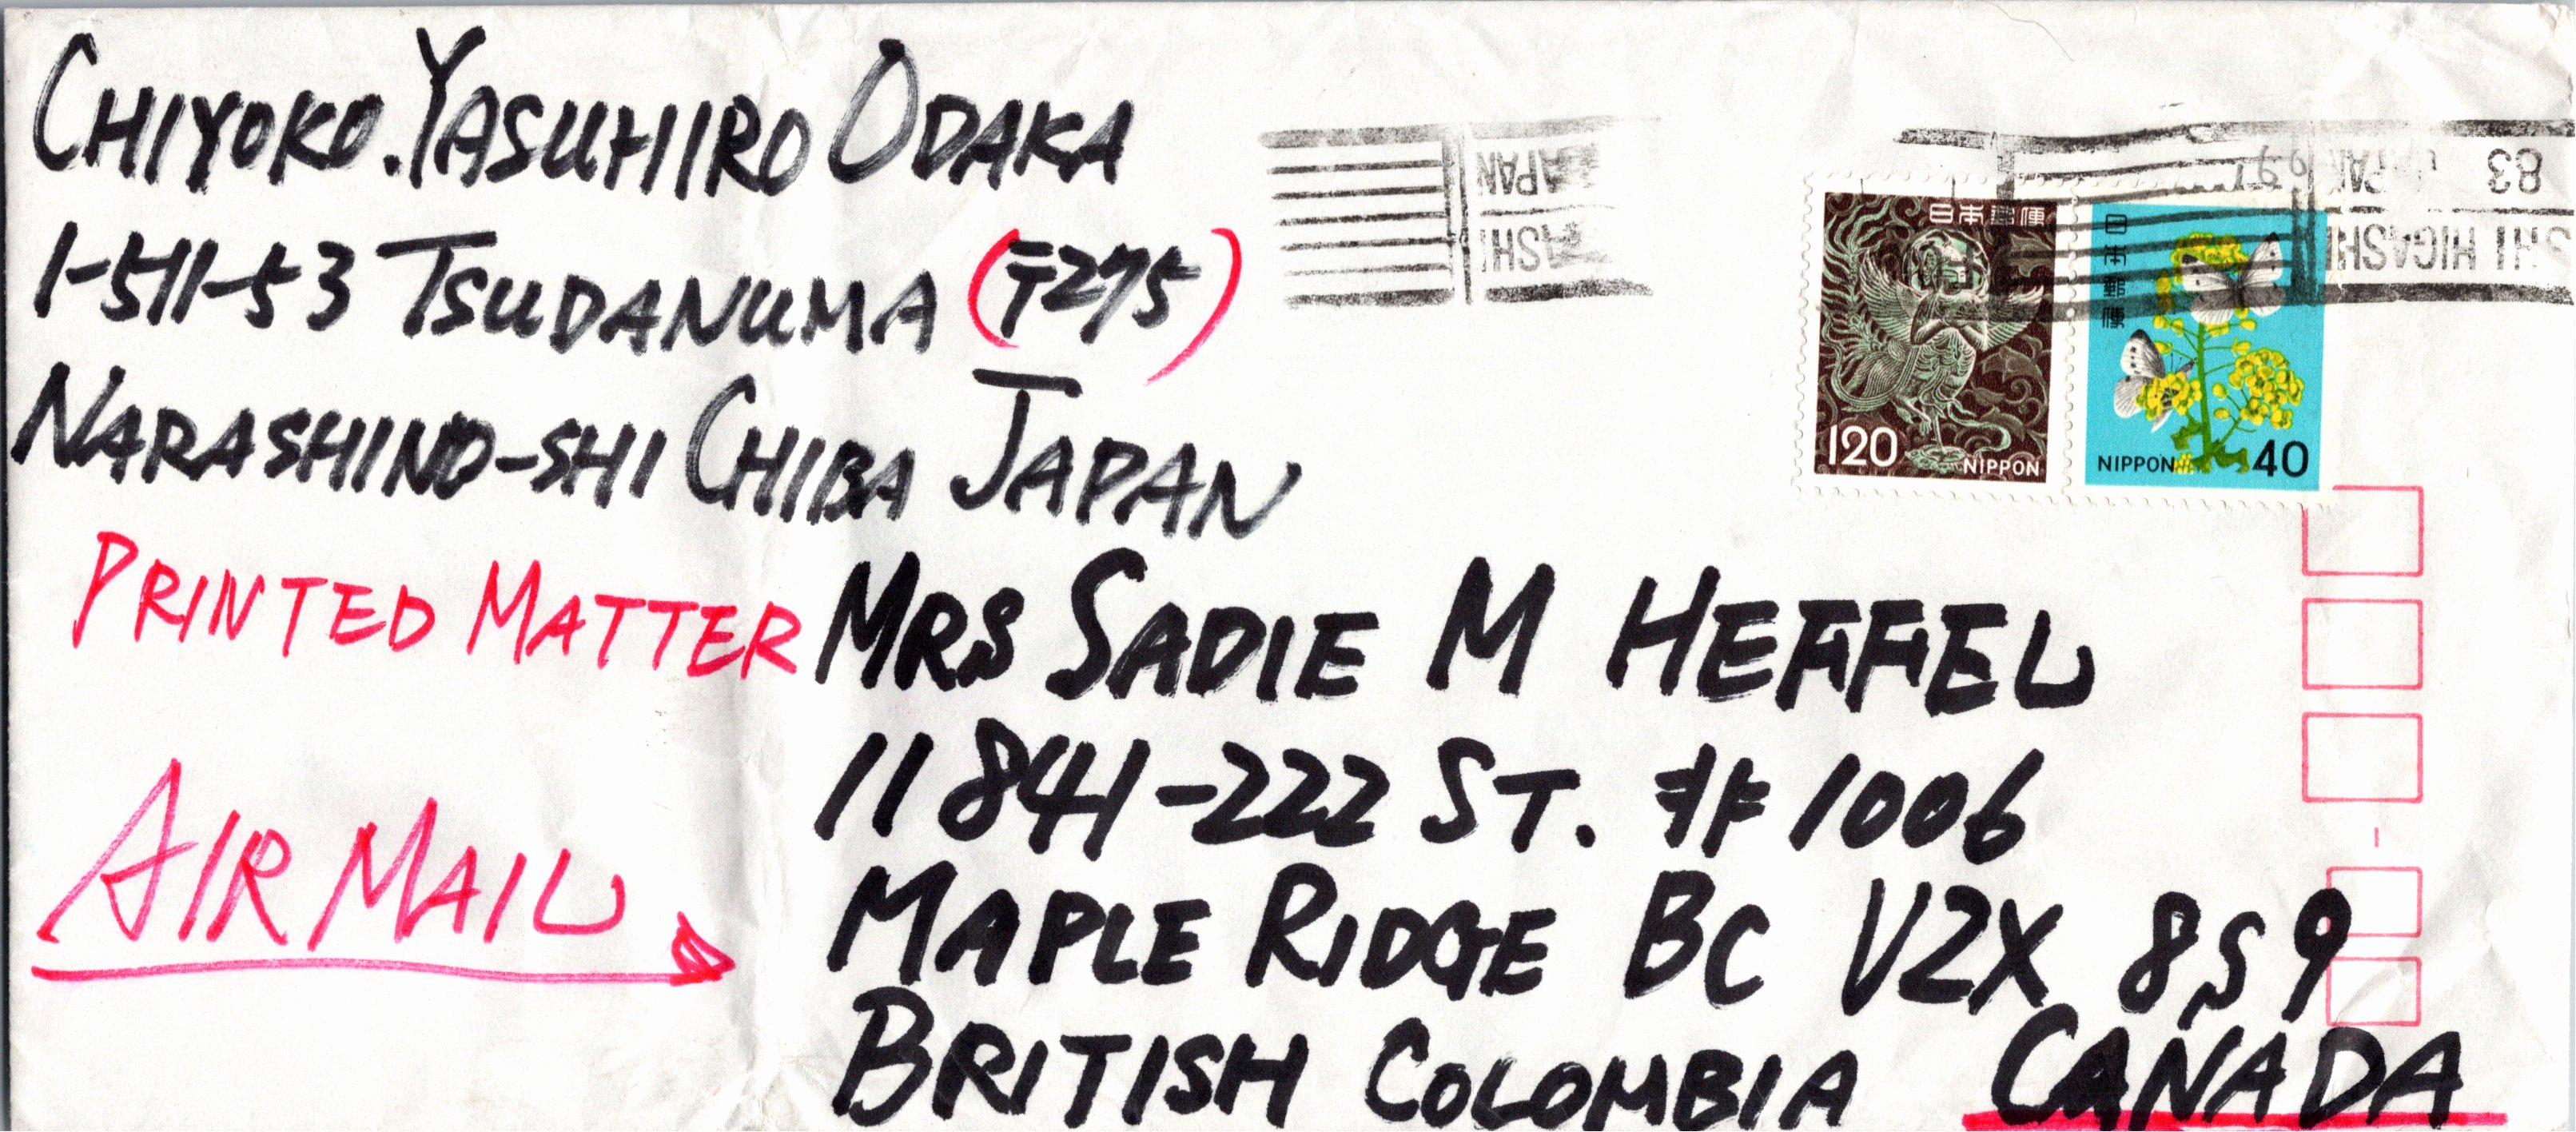 CHIYOKO.YASUHIRO ODAKA
1-511-53 TSUDANUMA (〒275)
NARASHINO-SHI CHIBA JAPAN
PRINTED MATTER
AIR MAIL
JAPAN
JAPAN
83
HIGASHI
日本郵便
120 NIPPON
日本郵便
NIPPON 40
MRS SADIE M HEFFEL
11841-222 ST. #1006
MAPLE RIDGE BC V2X 8S9
BRITISH COLOMBIA CANADA